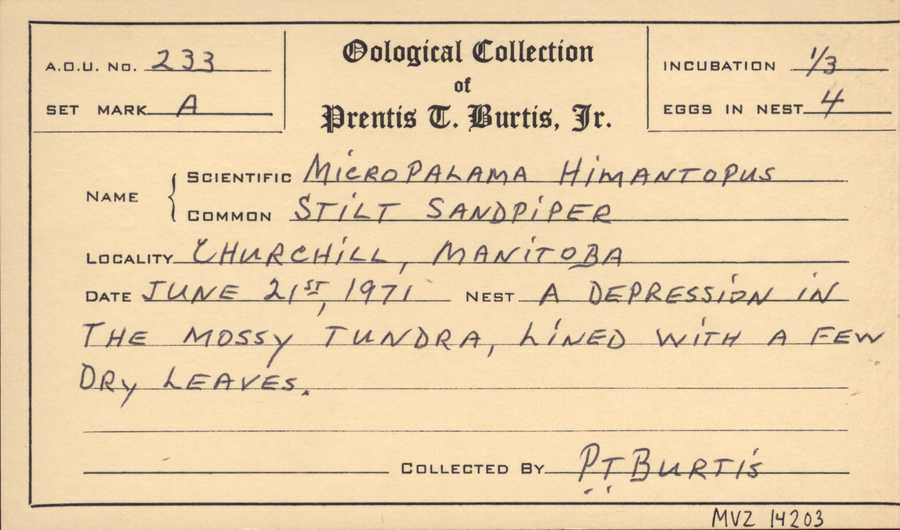 A.O.U. No. 233
SET MARK A
Oological Collection
of
Prentis T. Burtis, Jr.
INCUBATION 1/3
EGGS IN NEST 4
NAME { SCIENTIFIC MICROPALAMA HIMANTOPUS
COMMON STILT SANDPIPER
LOCALITY CHURCHILL, MANITOBA
DATE JUNE 21ST, 1971 NEST A DEPRESSION IN
THE MOSSY TUNDRA, LINED WITH A FEW
DRY LEAVES.
COLLECTED BY P.T. BURTIS
MVZ 14203